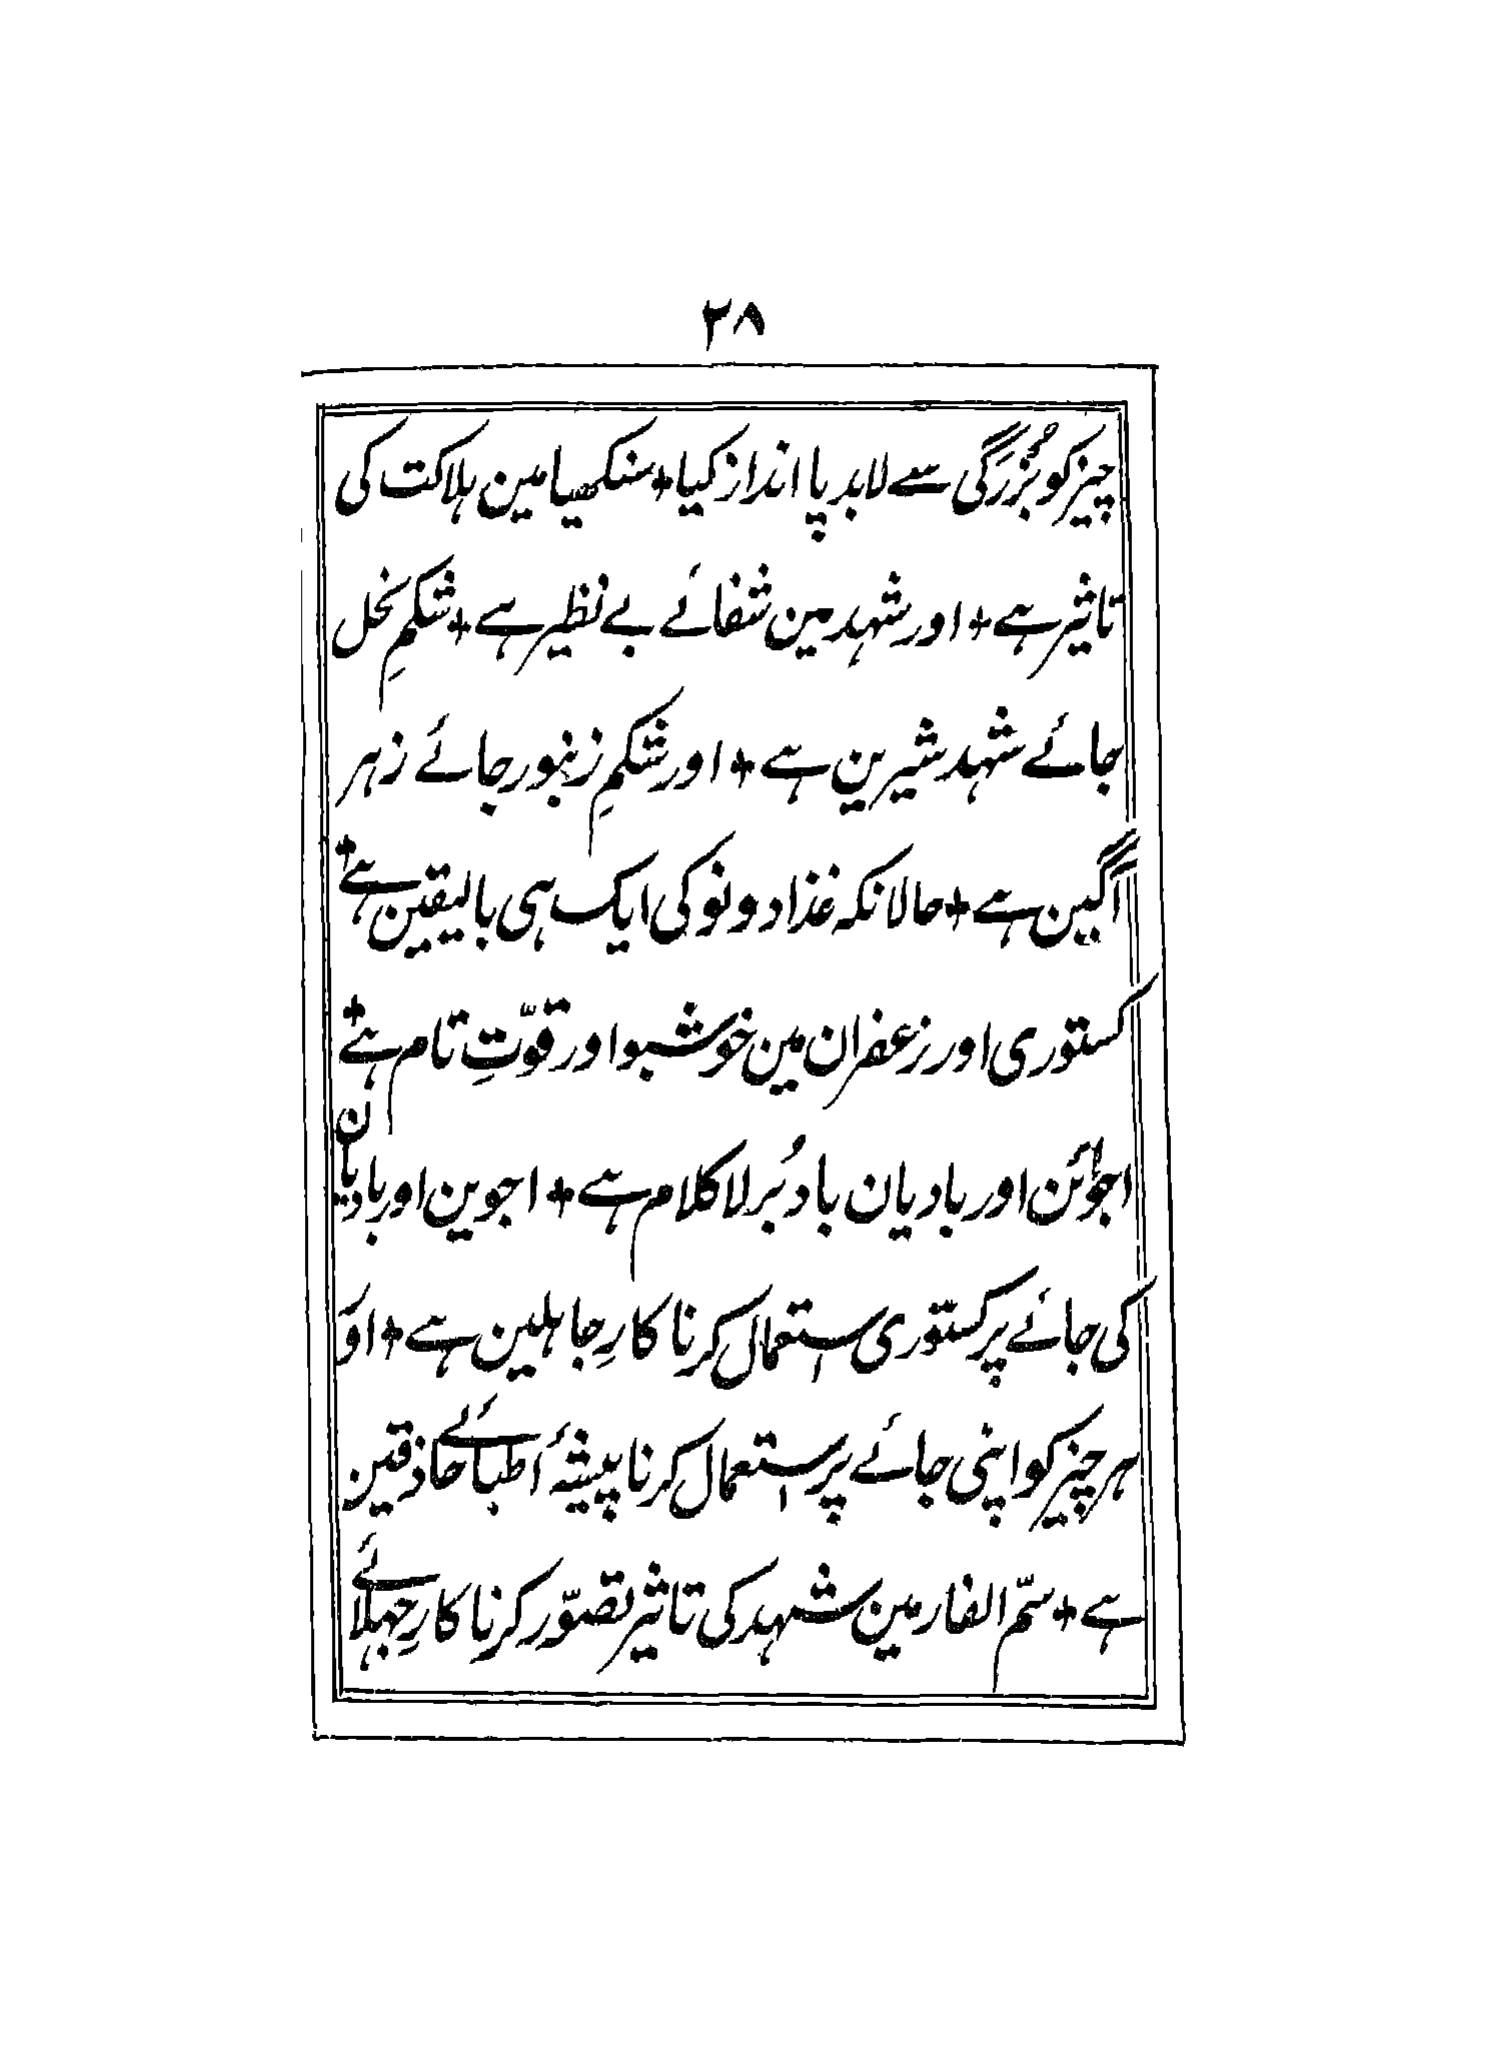 ۲۸
چیز کو بُزرگی سے لابد پا انداز کیا + سنکھیا مین ہلاکت کی
تاثیر ہے + اور شہد مین شفائے بے نظیر ہے + شکمِ نحل
جائے شہد شیرین ہے + اور شکمِ زنبور جائے زہر
آگین ہے + حالانکہ غذا دونو کی ایک ہی بالیقین ہے +
کستوری اور زعفران مین خوشبو اور قوّتِ تام ہے +
اجوائن اور بادیان باد بُر لا کلام ہے + اجوین اور بادیان
کی جائے پر کستوری استعمال کرنا کارِ جاہلین ہے + اور
ہر چیز کو اپنی جائے پر استعمال کرنا پیشۂ اطبائے حاذقین
ہے + سمّ الفار مین شہد کی تاثیر تصوّر کرنا کارِ جہلائے